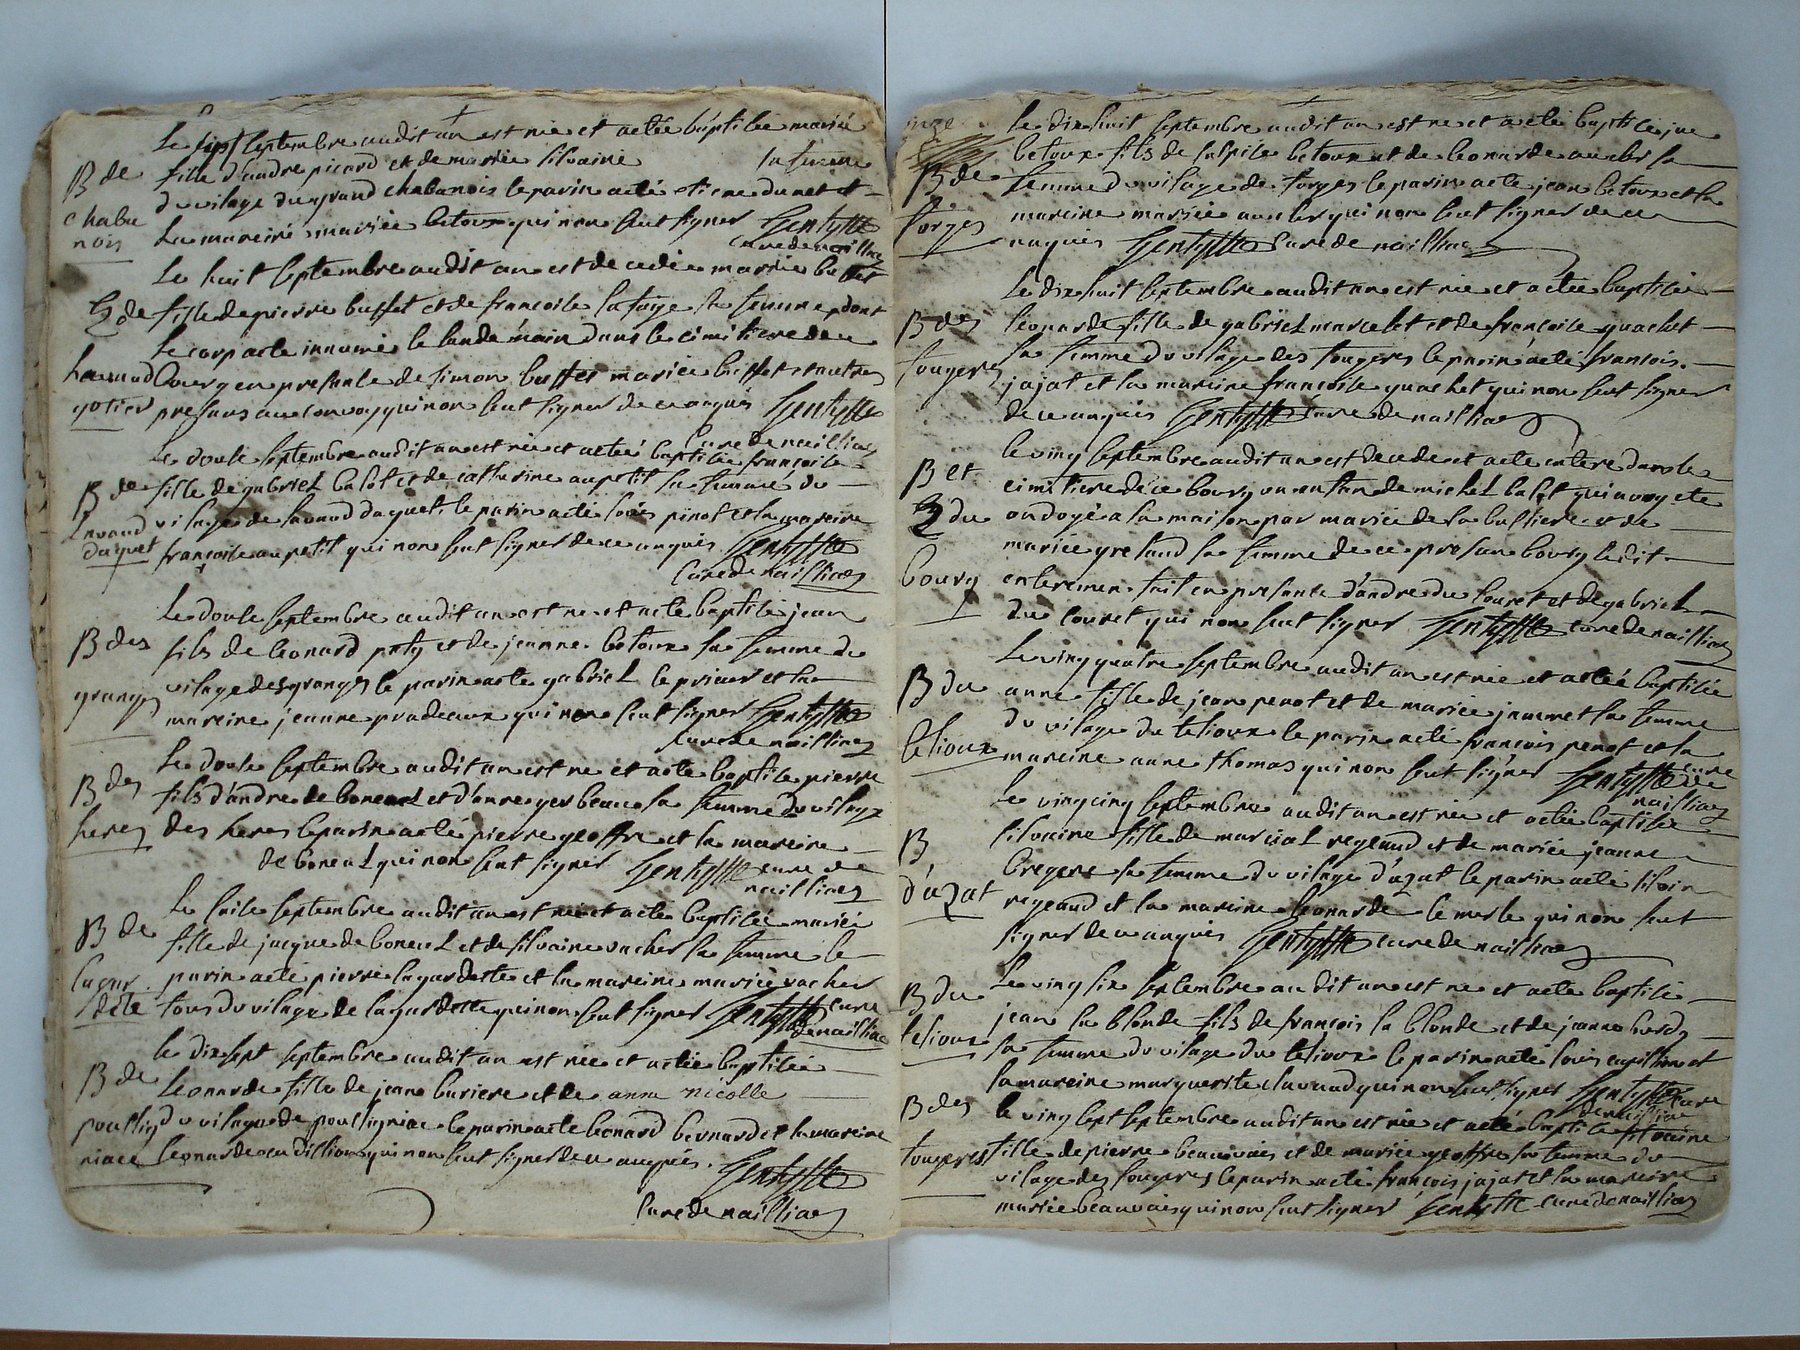 Le sept septembre audit an est née et actée baptisée mariee
B de fille d'andre picard et de mariee silvaine sa femme
du vilage du grand chabanois le parin acté etiene dunet et
chaba
nois la mareine mariée betoux qui non seut signer Gentysse
curé de naillac
Le huit septembre audit an est decedée mariee buffet
E de fille de pierre buffet et de francoise la faye sa femme dont
Le corp acte innumé le landemain dans le cimitiere de ce
bourg en presance de simon buffet mariee buffet et autres
presans au convoy qui non seut signer de ce anquis Gentysse
Curé de naillac
Le douse septembre audit an est née et actée baptisée francoise
B de fille de gabriel balot et de catherine aupetit sa femme du
Lavaud vilage de lavaud daquet le parin acté lois pinot et la mareine
daquet francoise aupetit qui non seut signer de ce anquis Gentysse
Curé de naillac
Le douse septembre audit an est ne et acte baptisé jean
B des fils de leonard paty et de jeanne betoux sa femme du
granges vilage des granges le parin acte gabriel le prieur et la
mareine jeanne pradeaux qui non seut signer Gentysse
Curé de naillac
Le douse septembre audit an est ne et acte baptisé pierre
B des fils d'andre de boneuil et d'anne yerbeau la femme du vilage
heres des heres le parin acté pierre geoffre et la mareine
de boneuil qui non seut signer Gentysse curé de
naillac
Le saise septembre audit an est née et actée baptisée mariée
B de fille de jacque de boneuil et de silvaine vacher sa femme le
lagar parin acté pierre lagardette et la mareine mariée vacher
dete tous du vilage de lagardette qui non seut signer Gentysse curé
de naillac
le dix sept septembre audit an est née et actée baptisée
B de Leonarde fille de jean buriere et de anne nicolle
poussig du vilage de poussigniac le parin acte leonard bernard et la mareine
niace leonarde audillion qui non seut signer de ce anquis. Gentysse
Curé de naillac
onze Le dix huit septembre audit an est ne et acté baptisé jan
betoux fils de sulpise betoux et de leonarde aucler sa
B de femme du vilage de forges le parin acte jean betoux et la
forges mareine mariée aucler qui non seut signer de ce
naquis Gentysse Curé de naillac
Le dix huit septembre audit an est née et actée baptisée
B des leonarde fille de gabriel marcelet et de françoise quachet
fougeres sa femme du vilage des fougeres le parin acté francois
jajat et la mareine françoise quachet qui non seut signer
de ce anquis Gentysse Curé de naillac
le ving septembre audit an est decede et acte entéré dans le
B et cimitiere de ce bourg un enfan de michel balot qui avoy ete
E du ondoyé a la maison par mariée de la bussiere et de
mariée grelaud sa femme de ce presan bourg ledit
bourg enteremen fait en presance d'andre du louret et de gabriel
du louret qui non seut signer Gentysse curé de naillac
Le ving quatre septembre audit an est née et actée baptisée
B du anne fille de jean penot et de mariée jammet sa femme
du vilage du teliou le parin acté francois penot et la
telioux mareine anne thomas qui non seut signer Gentysse curé
de
naillac
Le ving cinq septembre audit an est née et actée baptisée
B silvaine fille de marsial regeaud et de mariée jeanne
bregere sa femme du vilage d'azat le parin acté silvin
d'azat regeaud et la mareine leonarde le merle qui non seut
signer de ce anquis Gentysse curé de naillac
Le ving six septembre audit an est né et acté baptisé
B du jean la blonde fils de francois la blonde et de jeanne
telioux sa femme du vilage du teliou le parin acté lois et
la mareine marguerite lavaud qui non seut signer Gentysse curé
de naillac
B des le ving sept septembre audit an est née et actée baptisée silvaine
fougeres fille de pierre beauvais et de mariée geoffre sa femme du
vilage des fougeres le parin acté françois jajat et la mareine
mariée beauvais qui non seut signer Gentysse curé de naillac